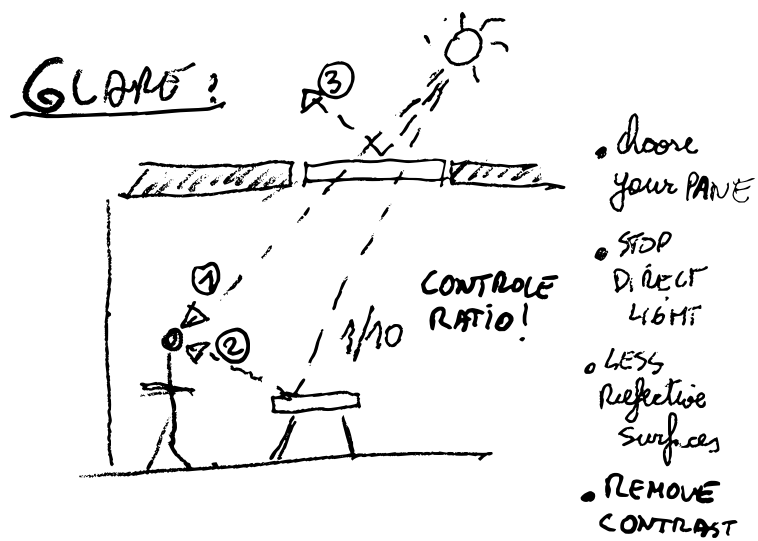 GLARE:
3
1
2
CONTROLE
RATIO!
1/10
• choose
your PANE
• STOP
DIRECT
LIGHT
• LESS
Reflective
surfaces
• REMOVE
CONTRAST